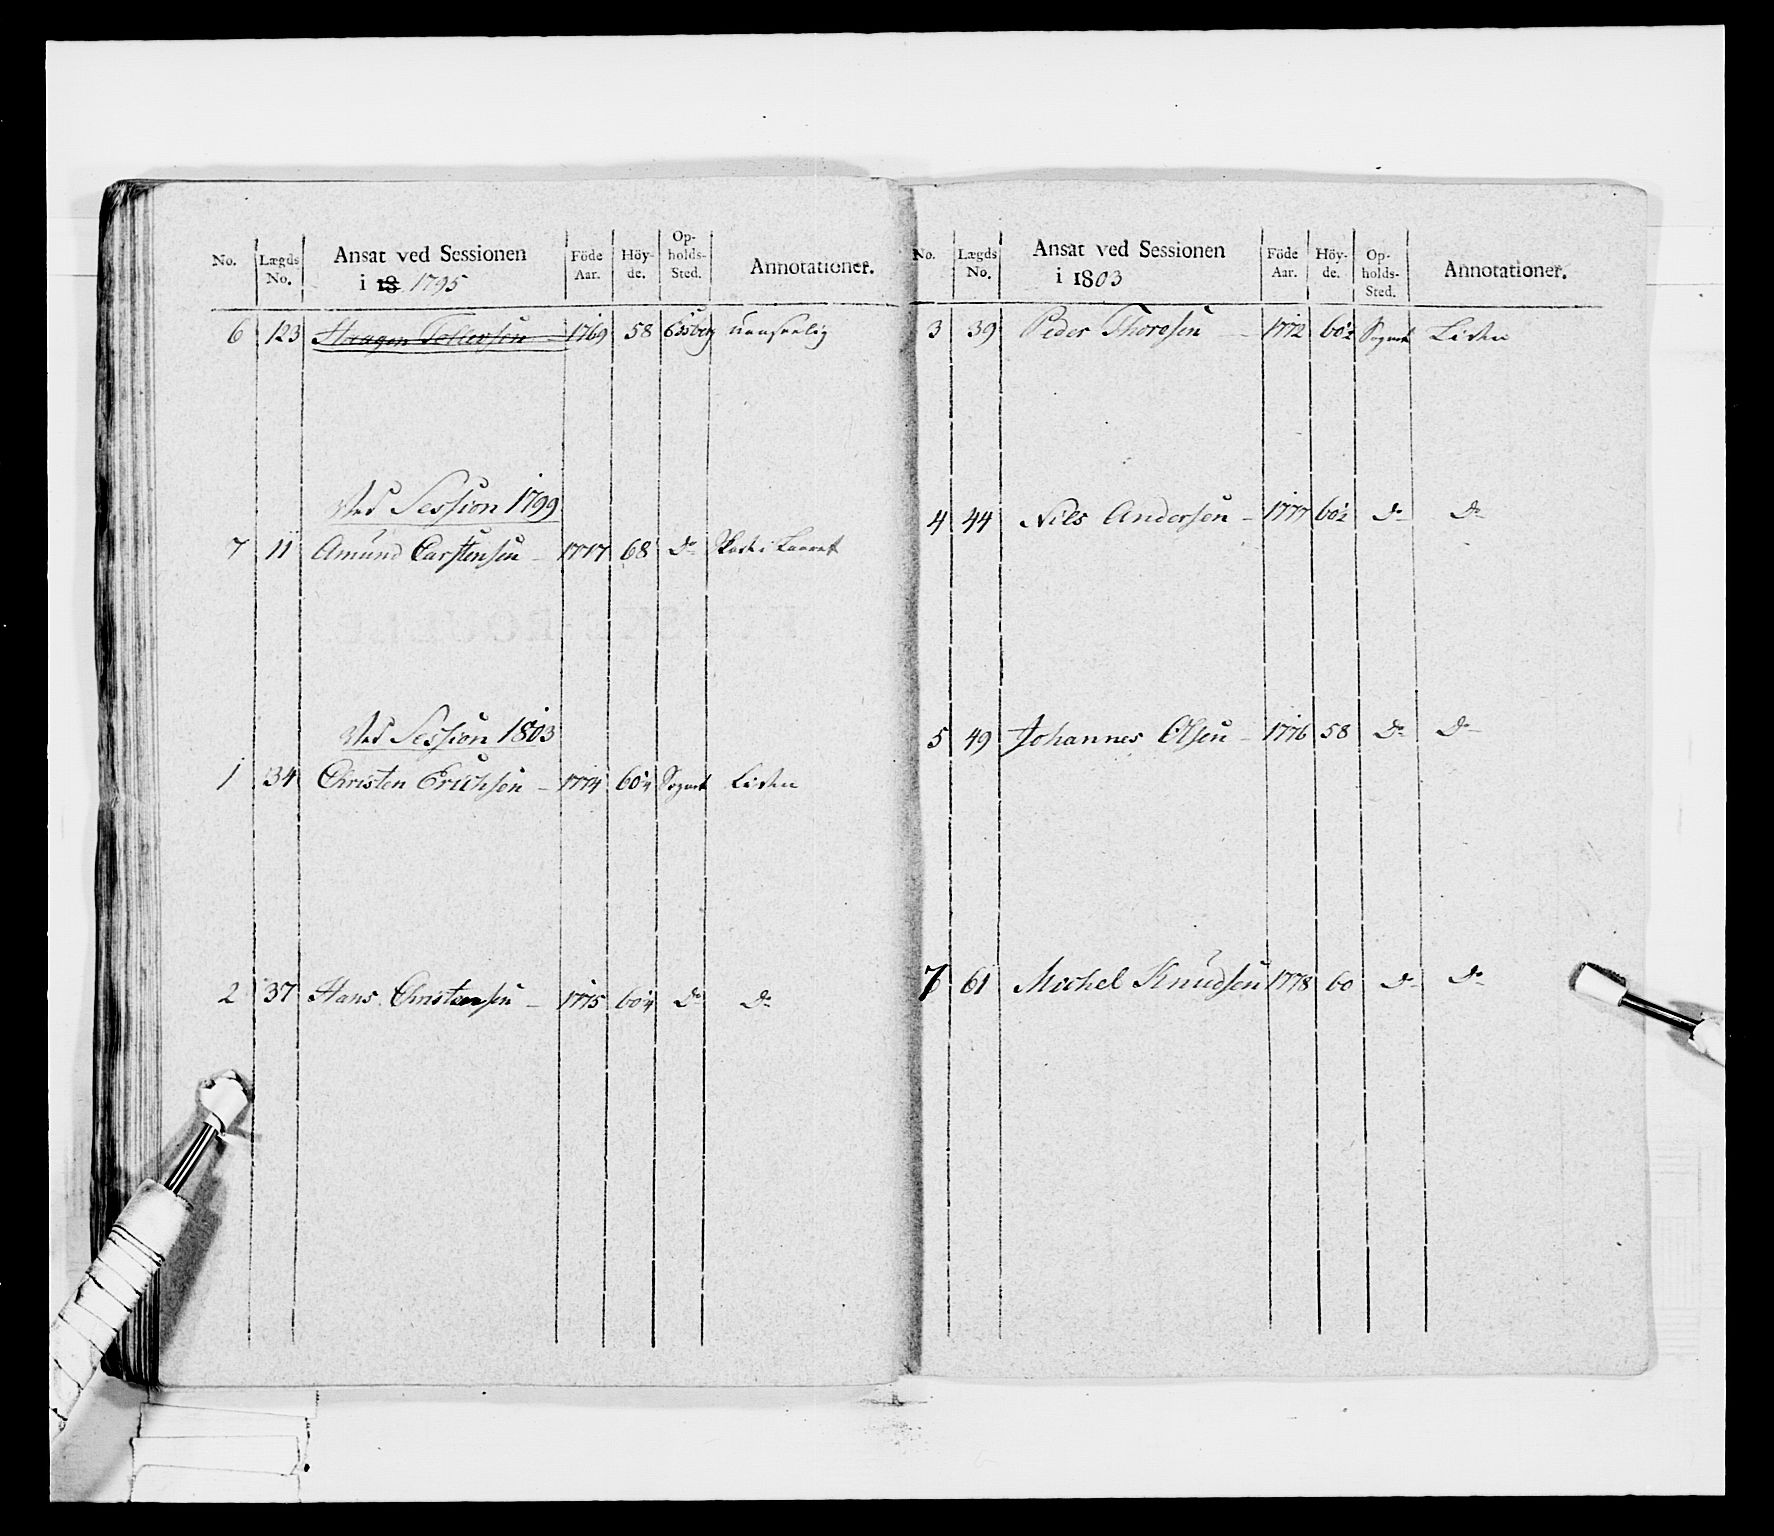 No. Lægds No. Ansat ved Sessionen i 18 1795 Föde Aar. Höy-de. Op-holds-Sted. Annotationer.
6 123 Haagen Tellefsen 1769 58 uanseelig
Ved Session 1799
7 11 Amund Carstensen - 1777 68 Do
Ved Session 1803
1 34 Christen Erichsen - 1774 60 1/4 Sognet Liden
2 37 Hans Christensen - 1775 60 1/4 Do Do
No. Lægds No. Ansat ved Sessionen i 1803 Föde Aar. Höy-de. Op-holds-Sted. Annotationer.
3 39 Peder Thoresen - 1772 60 1/2 Sognet Liden
4 44 Nils Andersen - 1777 60 1/2 Do Do
5 49 Johannes Olsen - 1776 58 Do Do
61 Michel Knudsen 1778 60 Do Do